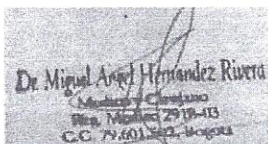 Dr. Miguel Angel Hernández Rivera
Médico y Cirujano
Reg. Médico 2918-
C.C. 79.601. Bogotá